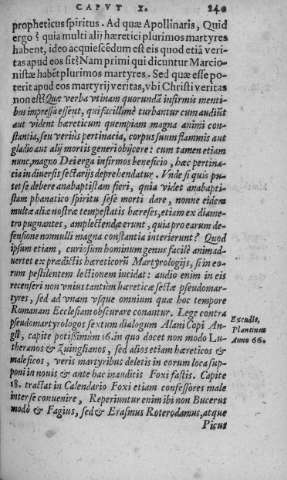 CAPVT X. 240
propheticus spiritus. Ad quæ Apollinaris, Quid
ergo? quia multi alij hæretici plurimos martyres
habent, ideo acquiescēdum est eis quod etiā veri-
tas apud eos sit? Nam primi qui dicuntur Marcio-
nistæ habēt plurimos martyres. Sed quæ esse po-
terit apud eos martyrij veritas, vbi Christi veritas
non est? Quæ verba vtinam quorundā infirmis menti-
bus impressa essent, qui facillimè turbantur cum audiūt
aut vident hæreticum quempiam magna animi con-
stantia, seu veriùs pertinacia, corpus suum flammis aut
gladio aut alij mortis generi obijcere: cum tamen etiam
nunc, magno Dei erga infirmos beneficio, hæc pertina-
cia in diuersis sectarijs deprehendatur. Vnde si quis pu-
tet se debere anabaptistam fieri, quia videt anabapti-
stam phanatico spiritu sese morti dare, nonne eidem
multæ aliæ nostræ tempestatis hæreses, etiam ex diame-
tro pugnantes, amplectendæ erunt, quia pro earum de-
fensione nonnulli magna constantia interierunt? Quod
ipsum etiam, curiosum hominum genus facilè animad-
uertet ex prædictis hæreticorū Martyrologijs, si in eo-
rum pestilentem lectionem incidat: audio enim in eis
recenseri non vnius tantùm hæreticæ sectæ pseudomar-
tyres, sed ad vnam vsque omnium quæ hoc tempore
Romanam Ecclesiam obscurare conantur. Lege contra
pseudomartyrologos sextum dialogum Alani Copi An-
gli, capite potissimùm 16. in quo docet non modò Lu-
theranos & Zuinglianos, sed alios etiam hæreticos &
maleficos, veris martyribus deletis in eorum loca sup-
poni in nonis & ante hac inauditis Foxi fastis. Capite
18. tractat in Calendario Foxi etiam confessores malè
inter se conuenire, Reperiuntur enim ibi non Bucerus
modò & Fagius, sed & Erasmus Roterodamus, atque
Picus
Excuss.
Plantinus
Anno 66.